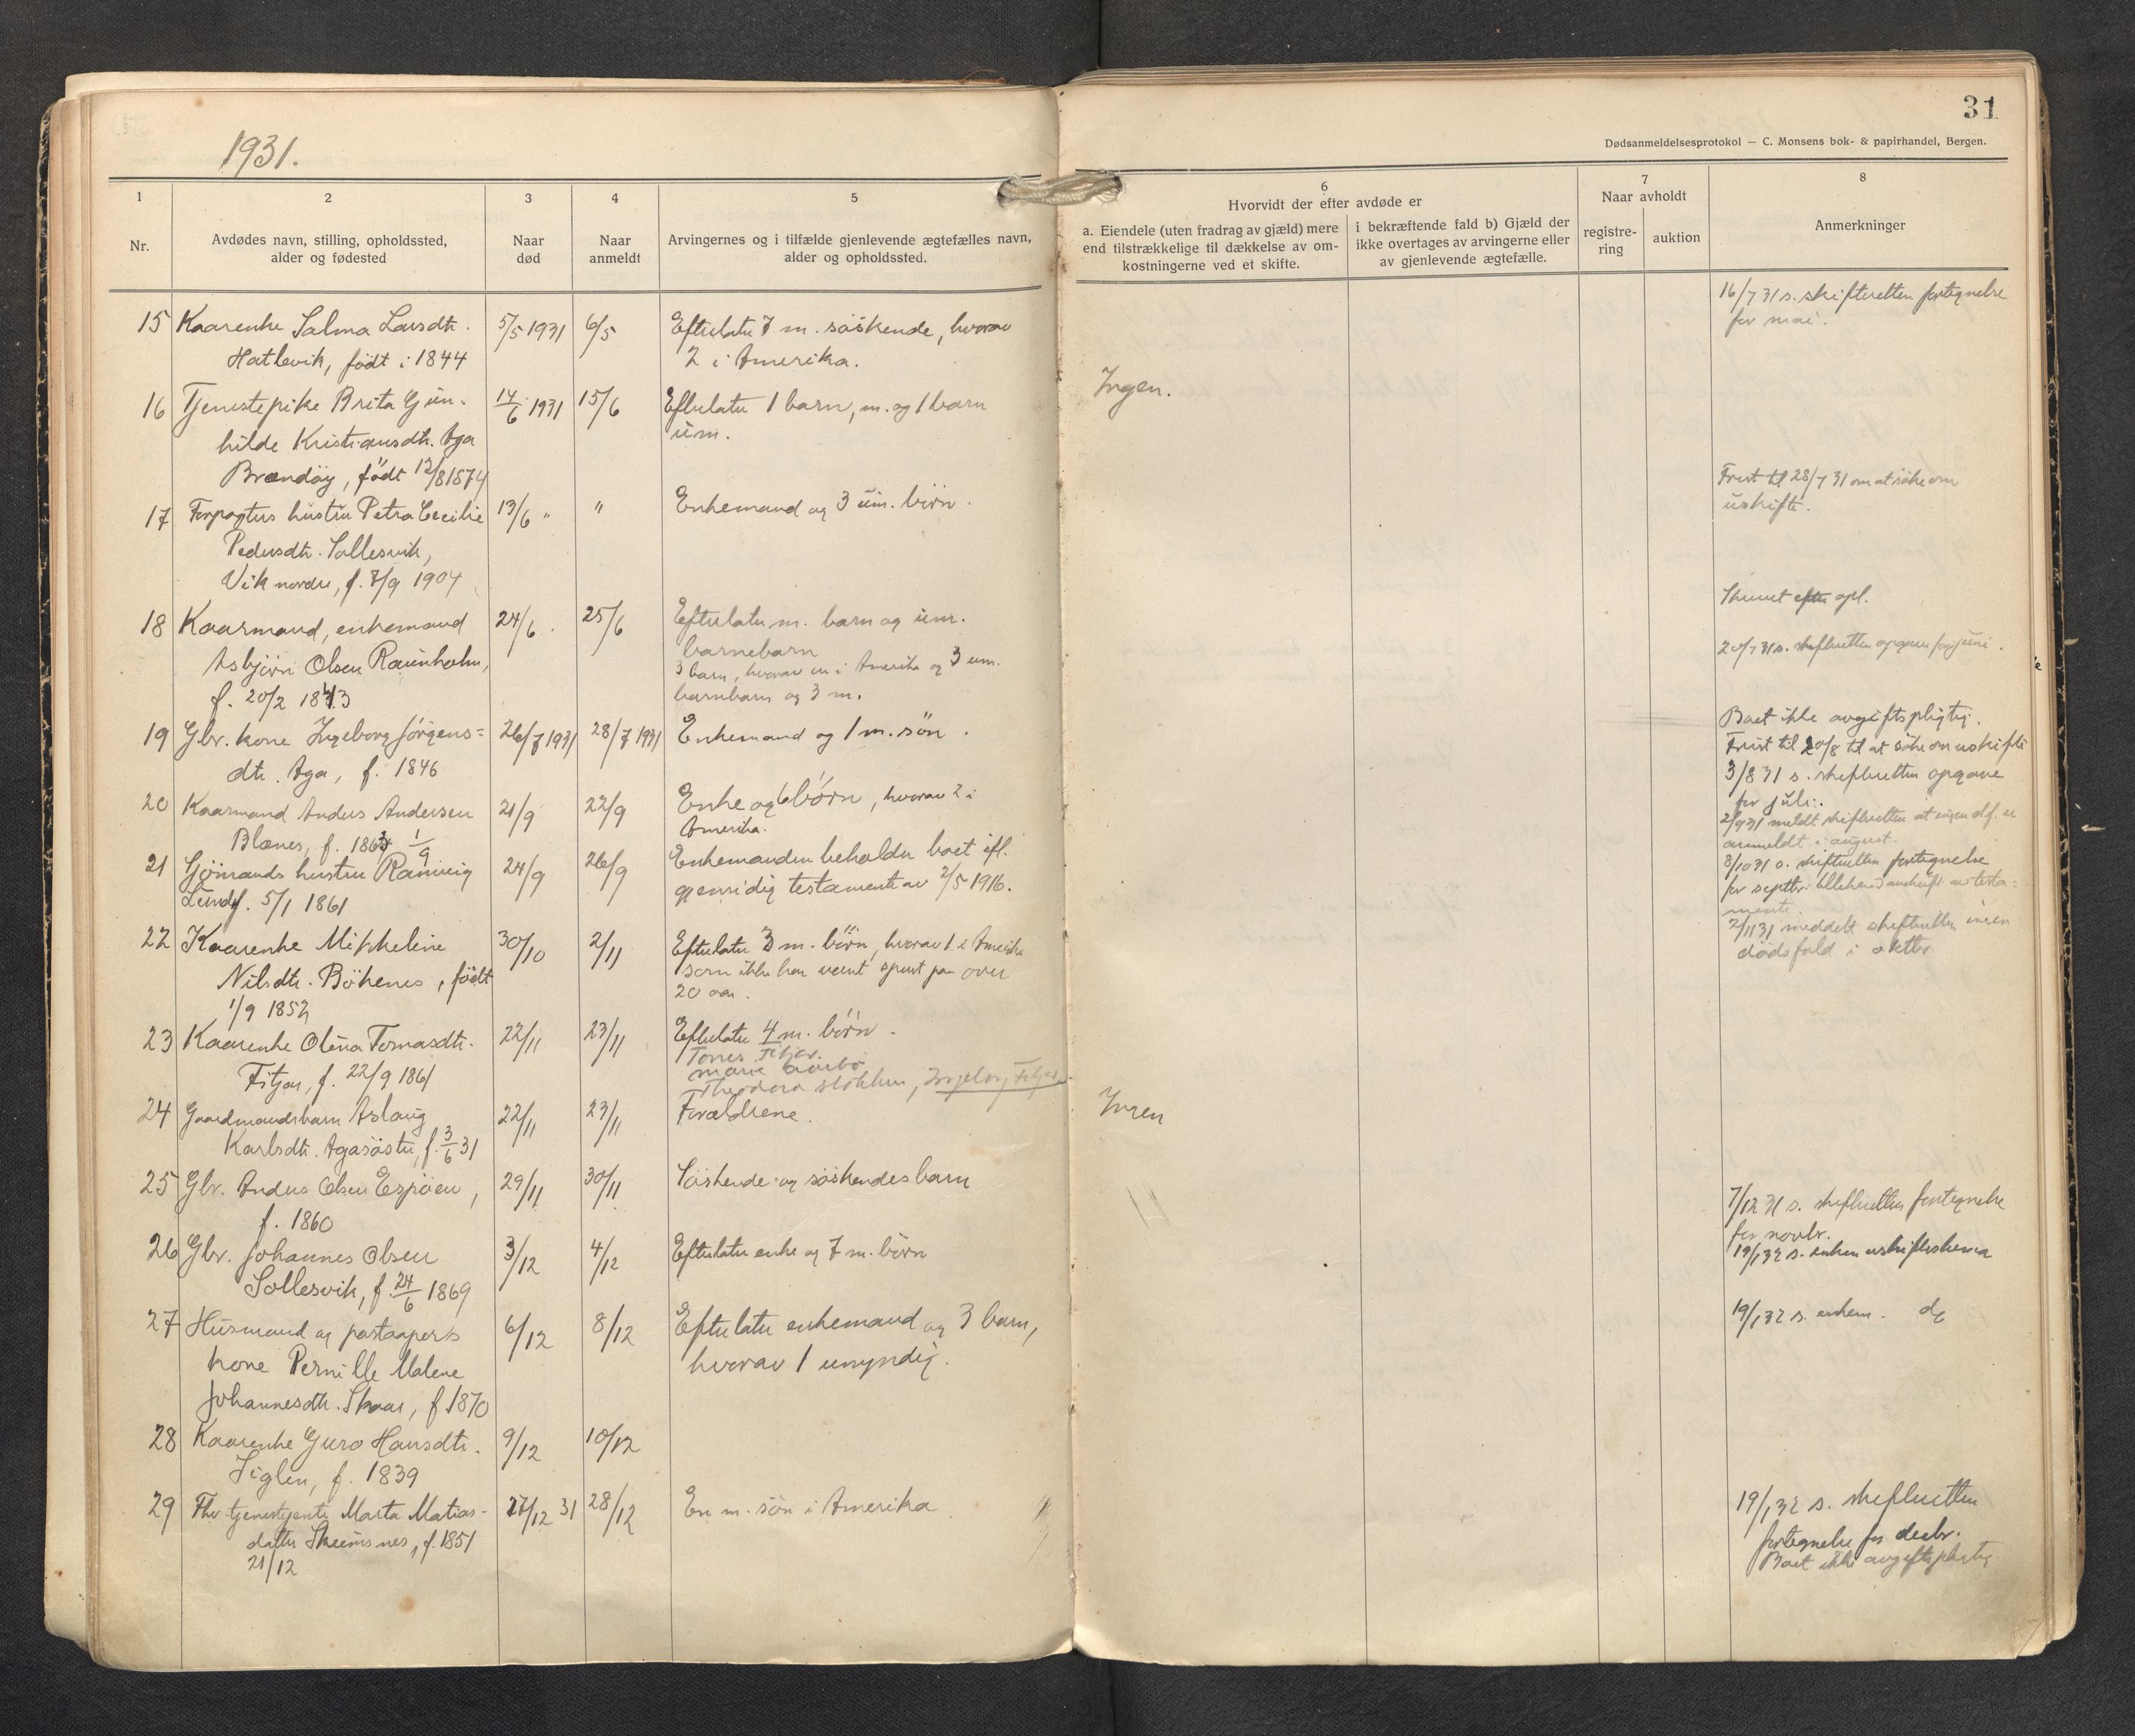 1931.
31
Dødsanmeldelsesprotokol — C. Monsens bok- & papirhandel, Bergen.
1
2
3
4
5
6
7
8
Nr.
Avdødes navn, stilling, opholdssted,
alder og fødested
Naar
død
Naar
anmeldt
Arvingernes og i tilfælde gjenlevende ægtefælles navn,
alder og opholdssted.
Hvorvidt der efter avdøde er
a. Eiendele (uten fradrag av gjæld) mere
end tilstrækkelige til dækkelse av om-
kostningerne ved et skifte.
i bekræftende fald b) Gjæld der
ikke overtages av arvingerne eller
av gjenlevende ægtefælle.
Naar avholdt
registre-
ring
auktion
Anmerkninger
16/7 31 s. skifteretten fortegnelse
for mai.
15 Kaarenke Salma Larsdtr. 5/5 1931 6/5 Efterlater 7 m. søskende, hvorav
Hatlevik, født i 1844 2 i Amerika.
16 Tjenestepike Brita Gun- 14/6 1931 15/6 Efterlater 1 barn, m. og 1 barn Ingen.
hilde Kristiansdtr. Aga um.
Brandøy, født 12/8 1874
17 Forpagters hustru Petra Cecilie 13/6 " " Enkemand og 3 um. børn. Frist til 28/7 31 om at søke om
uskifte.
Pedersdtr. Sollesvik,
Vik nordre, f. 7/9 1904
Skrevet efter opl.
18 Kaarmand, enkemand 24/6. 25/6 Efterlater m. barn og um.
barnebarn 20/7 31 s. skifteretten opgave for juni.
Asbjørn Olsen Raunholm, 3 barn, hvorav en i Amerika og 3 um.
f. 20/2 1843 barnbarn og 3 m.
Boet ikke avgiftspligtig.
19 Gbr. kone Ingeborg Jørgens= 26/7 1931 28/7 1931 Enkemand og 1 m. søn. Frist til 20/8 til at søke om uskifte
dtr. Aga, f. 1846 3/8 31 s. skifteretten opgave
for juli.
20 Kaarmand Anders Andersen 21/9 22/9 Enke og 6 børn, hvorav 2 i
Blænes, f. 1863 1/9 Amerika. 2/9 31 meldt skifteretten at ingen df. er
anmeldt i august.
21 Sjømands hustru Ranveig 24/9 26/9 Enkemanden beholder boet ifl. 8/10 31 s. skifteretten fortegnelse
Lund f. 5/1 1861 gjensidig testamente av 2/5 1916. for septbr. tillikemed avskrift av testa=
mente.
22 Kaarenke Mikkeline 30/10 2/11 Efterlater 3 m. børn, hvorav 1 i Amerika 2/11 31 meddelt skifteretten ingen
Nilsdtr. Bøkenes, født som ikke har været spurt paa over dødsfald i oktbr.
1/9 1852 20 aar.
23 Kaarenke Olena Tomasdtr. 22/11 23/11 Efterlater 4 m. børn.
Tones Fitjar.
Fitjar, f. 22/9 1861 Marie Aarbø
Theodora Stokken, Ingeborg Fitjar
24 Gaardmandsbarn Aslaug 22/11 23/11 Forældrene. Ingen
Karlsdtr. Agasøster, f. 3/6 31
25 Gbr. Anders Olsen Espøen, 29/11 30/11 Søskende og søskendes barn
f. 1860 7/12 31 s. skifteretten fortegnelse
for novbr.
26 Gbr. Johannes Olsen 3/12 4/12 Efterlater enke og 7 m. børn 19/1 32 s. enken uskifteskema
Sollesvik, f. 24/6 1869
27 Husmand og postaapners 6/12 8/12 Efterlater enkemand og 3 barn, 19/1 32 s. enkem. do
kone Pernille Malene hvorav 1 umyndig.
Johannesdtr. Skaar, f. 1870
28 Kaarenke Guro Hansdtr. 9/12 10/12
Siglen, f. 1839
29 Fhv. tjenestjente Marta Matias- 27/12 31 28/12 En m. søn i Amerika 19/1 32 s. skifteretten
datter Skumsnes, f. 1851 fortegnelse for decbr.
21/12 Boet ikke avgiftspligtig